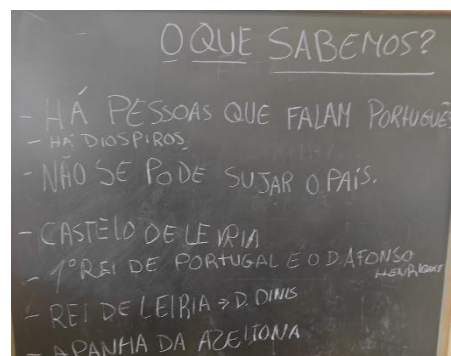 O QUE SABEMOS?
- HÁ PESSOAS QUE FALAM PORTUGUÊS
- HÁ DIOSPIROS
- NÃO SE PODE SUJAR O PAÍS.
- CASTELO DE LEIRIA
- 1º REI DE PORTUGAL É O D. AFONSO
HENRIQUES
- REI DE LEIRIA → D. DINIS
- APANHA DA AZEITONA